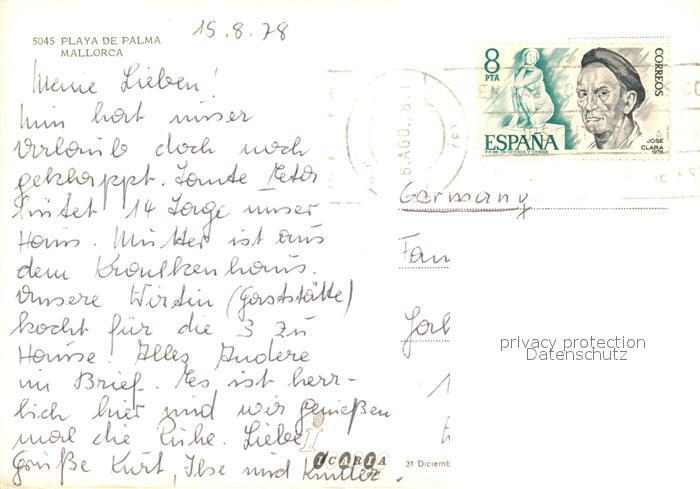 15.8.78
5045 PLAYA DE PALMA
MALLORCA
Meine Lieben!
Nun hat unser
Urlaub doch noch
geklappt. Tante Meta
hütet 14 Tage unser
Haus. Mutter ist aus
dem Krankenhaus.
Unsere Wirtin (Gaststätte)
kocht für die 3 zu
Hause! Alles Andere
im Brief. Es ist herr-
lich hier und wir genießen
mal die Ruhe. Liebe
Grüße Kurt, Ilse und Kinder.
8
PTA
CORREOS
ESPAÑA
JOSE
CLARA
1978
AGO.
Germany
Fam
privacy protection
Datenschutz
ICARIA
31 Diciemb